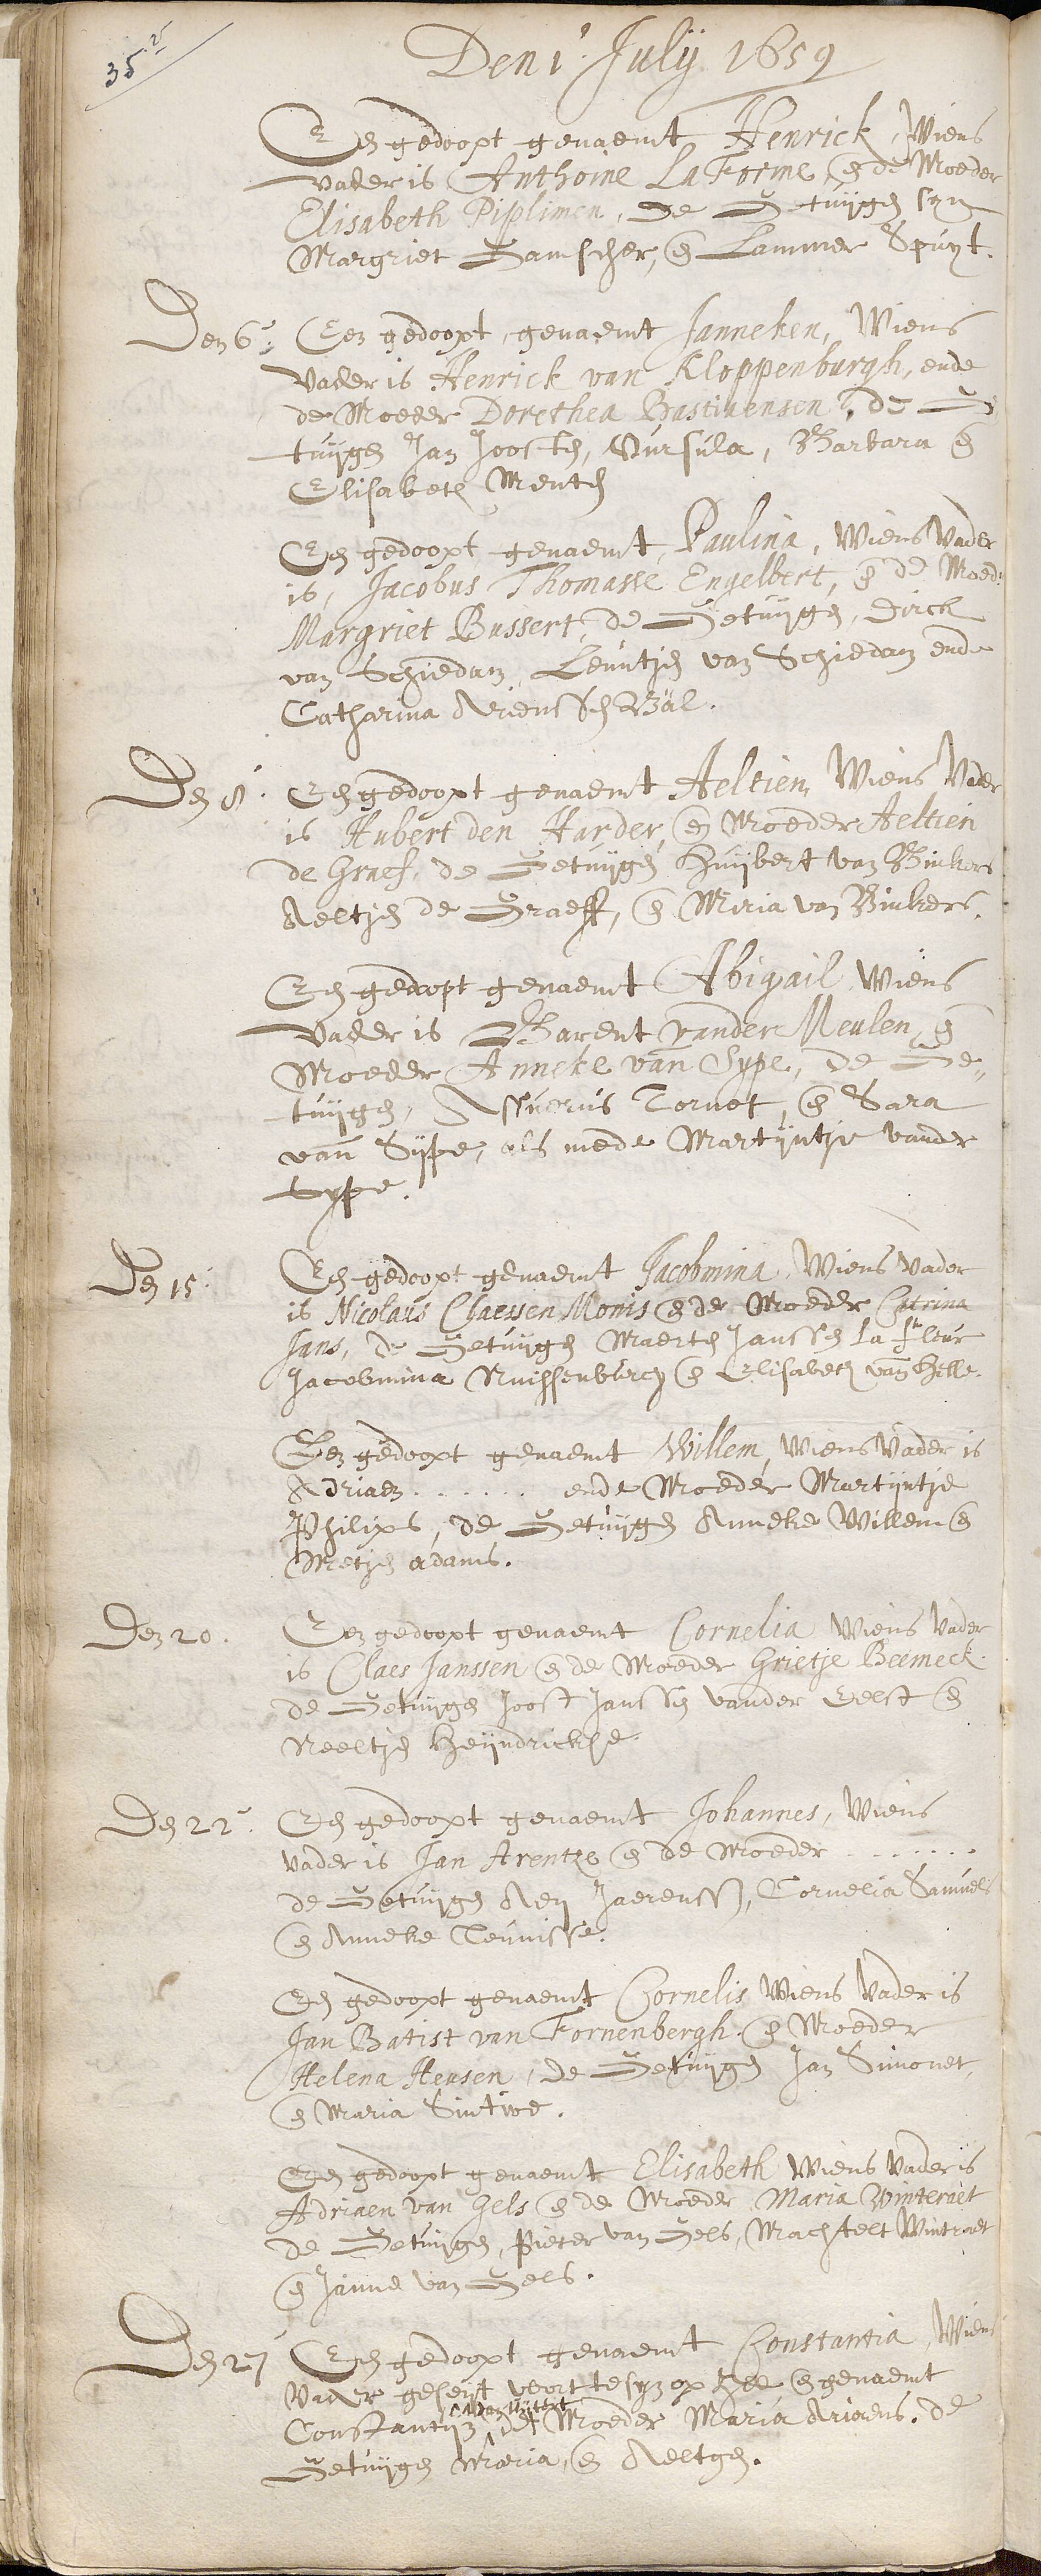 35
Den 1 July 1659
Een gedoopt genaemt Henrick, Wiens
vader is Anthoine La Forme, en de Moeder
Elisabeth Piplimen, de Getuygen syn
Margriet Gamscher, en Lammer Spuyt.
Den 6 Een gedoopt, genaemt Janneken, Wiens
Vader is Henrick van Kloppenburgh, ende
de Moeder Dorethea Bastiaensen, de Ge
tuygen Jan Joosten, Vursula, Barbara en
Elisabeth Menten
Een gedoopt genaemt, Paulina, Wiens Vader
is, Jacobus Thomasse Engelbert, en de Moed:
Margriet Bussert, de Getuygen, Dirck
van Schiedam, Leuntjen van Schiedam ende
Catharina Arienssen Bal.
Den 8. Een gedoopt genaemt Aeltien, Wiens Vader
is Hubert den Harder, en Moeder Aeltien
de Graef, de Getuygen Huijbert van Binkers
Aeltjen de Graeff, en Miria van Binkers.
Een gedoopt genaemt Abigail Wiens
Vader is Barent vander Meulen, en
Moeder Anneke van Sype, de Ge„
tuygen, Assuerus Tornot, en Sara
vann Sype, als mede Martijntje vander
Sype.
Den 15. Een gedoopt genaemt Jacobmina, Wiens Vader
is Nicolaus Claessen Monis en de Moeder Catrina
Jans, de Getuygen Maerten Janssen La fleur
Jacobmina Ruissenburch en Elisabeth van Helle.
Een gedoopt genaemt Willem, Wiens Vader is
Adriaen . . . . . . ende Moeder Martijntje
Philips, de Getuygen Anneke Willem en
Metjen adams.
Den 20. Een gedoopt genaemt Cornelia Wiens Vader
is Claes Janssen en de Moeder Grietje Beemeck.
de Getuygen Joost Janssen vander Eelst en
Neeltjen Heijndrickse.
Den 22. Een gedoopt genaemt Johannes, Wiens
Vader is Jan Arentze en de Moeder . . . . . . .
de Getuygen Arij Jaerenssen, Cornelia Samuels
en Anneke Teunisse.
Een gedoopt genaemt Cornelis Wiens Vader is
Jan Batist van Fornenbergh. en Moeder
Helena Hensen, de Getuygen Jan Simonet,
en Maria Sintwe.
Een gedoopt genaemt Elisabeth Wiens Vader is
Adriaen van Gels en de Moeder Maria Winteraet
de Getuygen, Pieter van Gels, Machtelt Wintraet
en Janne van Gels.
Den 27 Een gedoopt genaemt Constantia, Wiens
Vader geseyt wort te syn op Zee en genaemt
Constantijn de Moeder Maria Ariaens. de
Getuygen Maria, en Aeltgen.